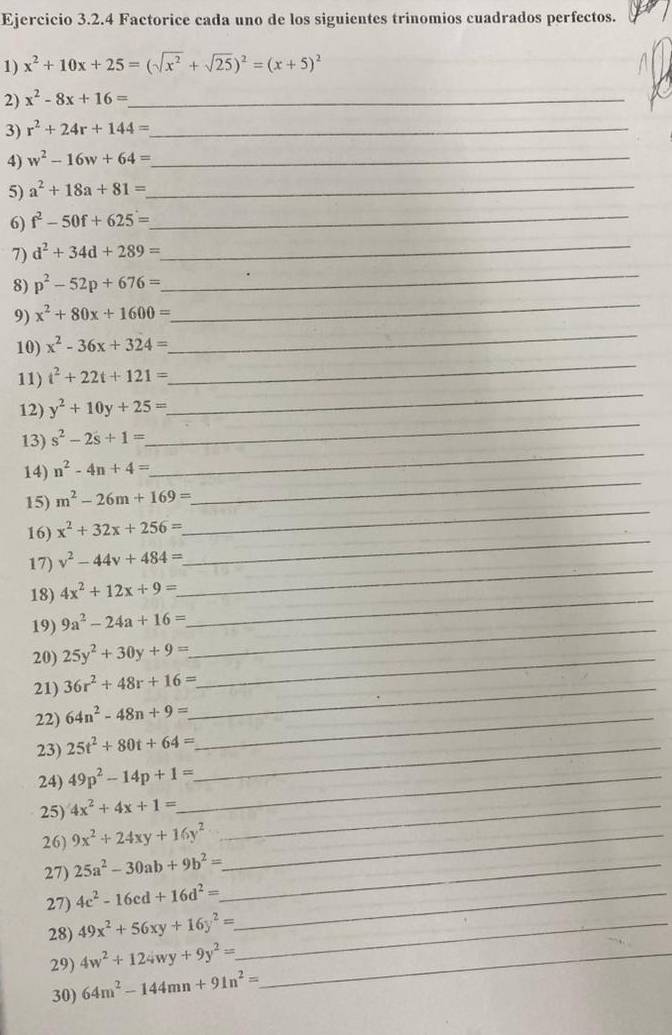 Ejercicio 3.2.4 Factorice cada uno de los siguientes trinomios cuadrados perfectos.
1) x² + 10x + 25 = (√x² + √25)² = (x + 5)²
2) x² - 8x + 16 =
3) r² + 24r + 144 =
4) w² – 16w + 64 =
5) a² + 18a + 81 =
6) f² – 50f + 625 =
7) d² + 34d + 289 =
8) p² – 52p + 676 =
9) x² + 80x + 1600 =
10) x² - 36x + 324 =
11) t² + 22t + 121 =
12) y² + 10y + 25 =
13) s² – 2s + 1 =
14) n² - 4n + 4 =
15) m² – 26m + 169 =
16) x² + 32x + 256 =
17) v² – 44v + 484 =
18) 4x² + 12x + 9 =
19) 9a² – 24a + 16 =
20) 25y² + 30y + 9 =
21) 36r² + 48r + 16 =
22) 64n² - 48n + 9 =
23) 25t² + 80t + 64 =
24) 49p² – 14p + 1 =
25) 4x² + 4x + 1 =
26) 9x² + 24xy + 16y²
27) 25a² – 30ab + 9b² =
27) 4c² - 16cd + 16d² =
28) 49x² + 56xy + 16y² =
29) 4w² + 124wy + 9y² =
30) 64m² – 144mn + 91n² =